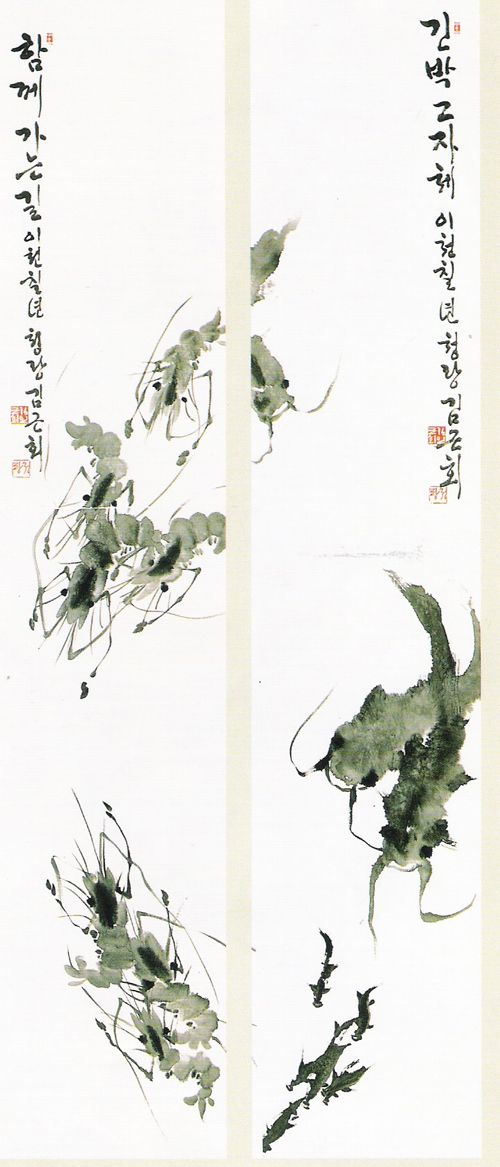 함께 가는 길 이천칠년 청랑 김근회
긴박 그 자체 이천칠년 청랑 김근회